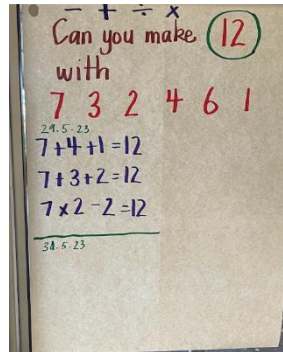 − + ÷ x
Can you make 12
with
7 3 2 4 6 1
29.5.23
7+4+1=12
7+3+2=12
7x2-2=12
31.5.23